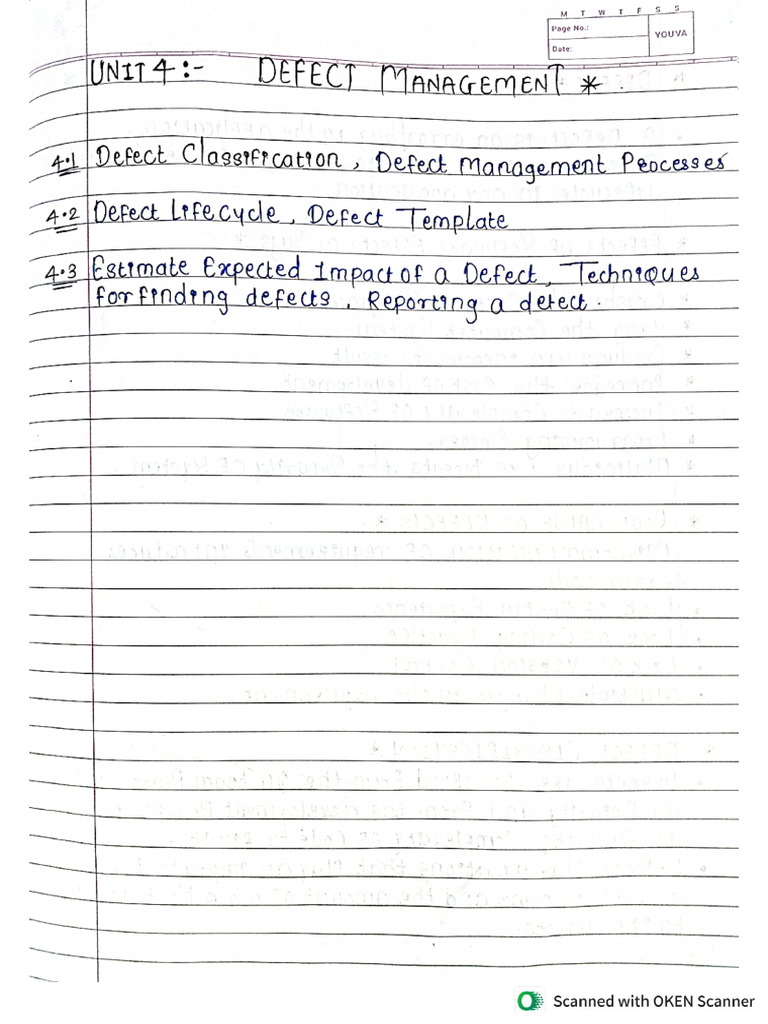 M T W T F S S
Page No.:
YOUVA
Date:
UNIT 4 :- DEFECT MANAGEMENT *
4.1 Defect Classification, Defect Management Processes
4.2 Defect Lifecycle, Defect Template
4.3 Estimate Expected Impact of a Defect, Techniques
for finding defects, Reporting a defect.
Scanned with OKEN Scanner